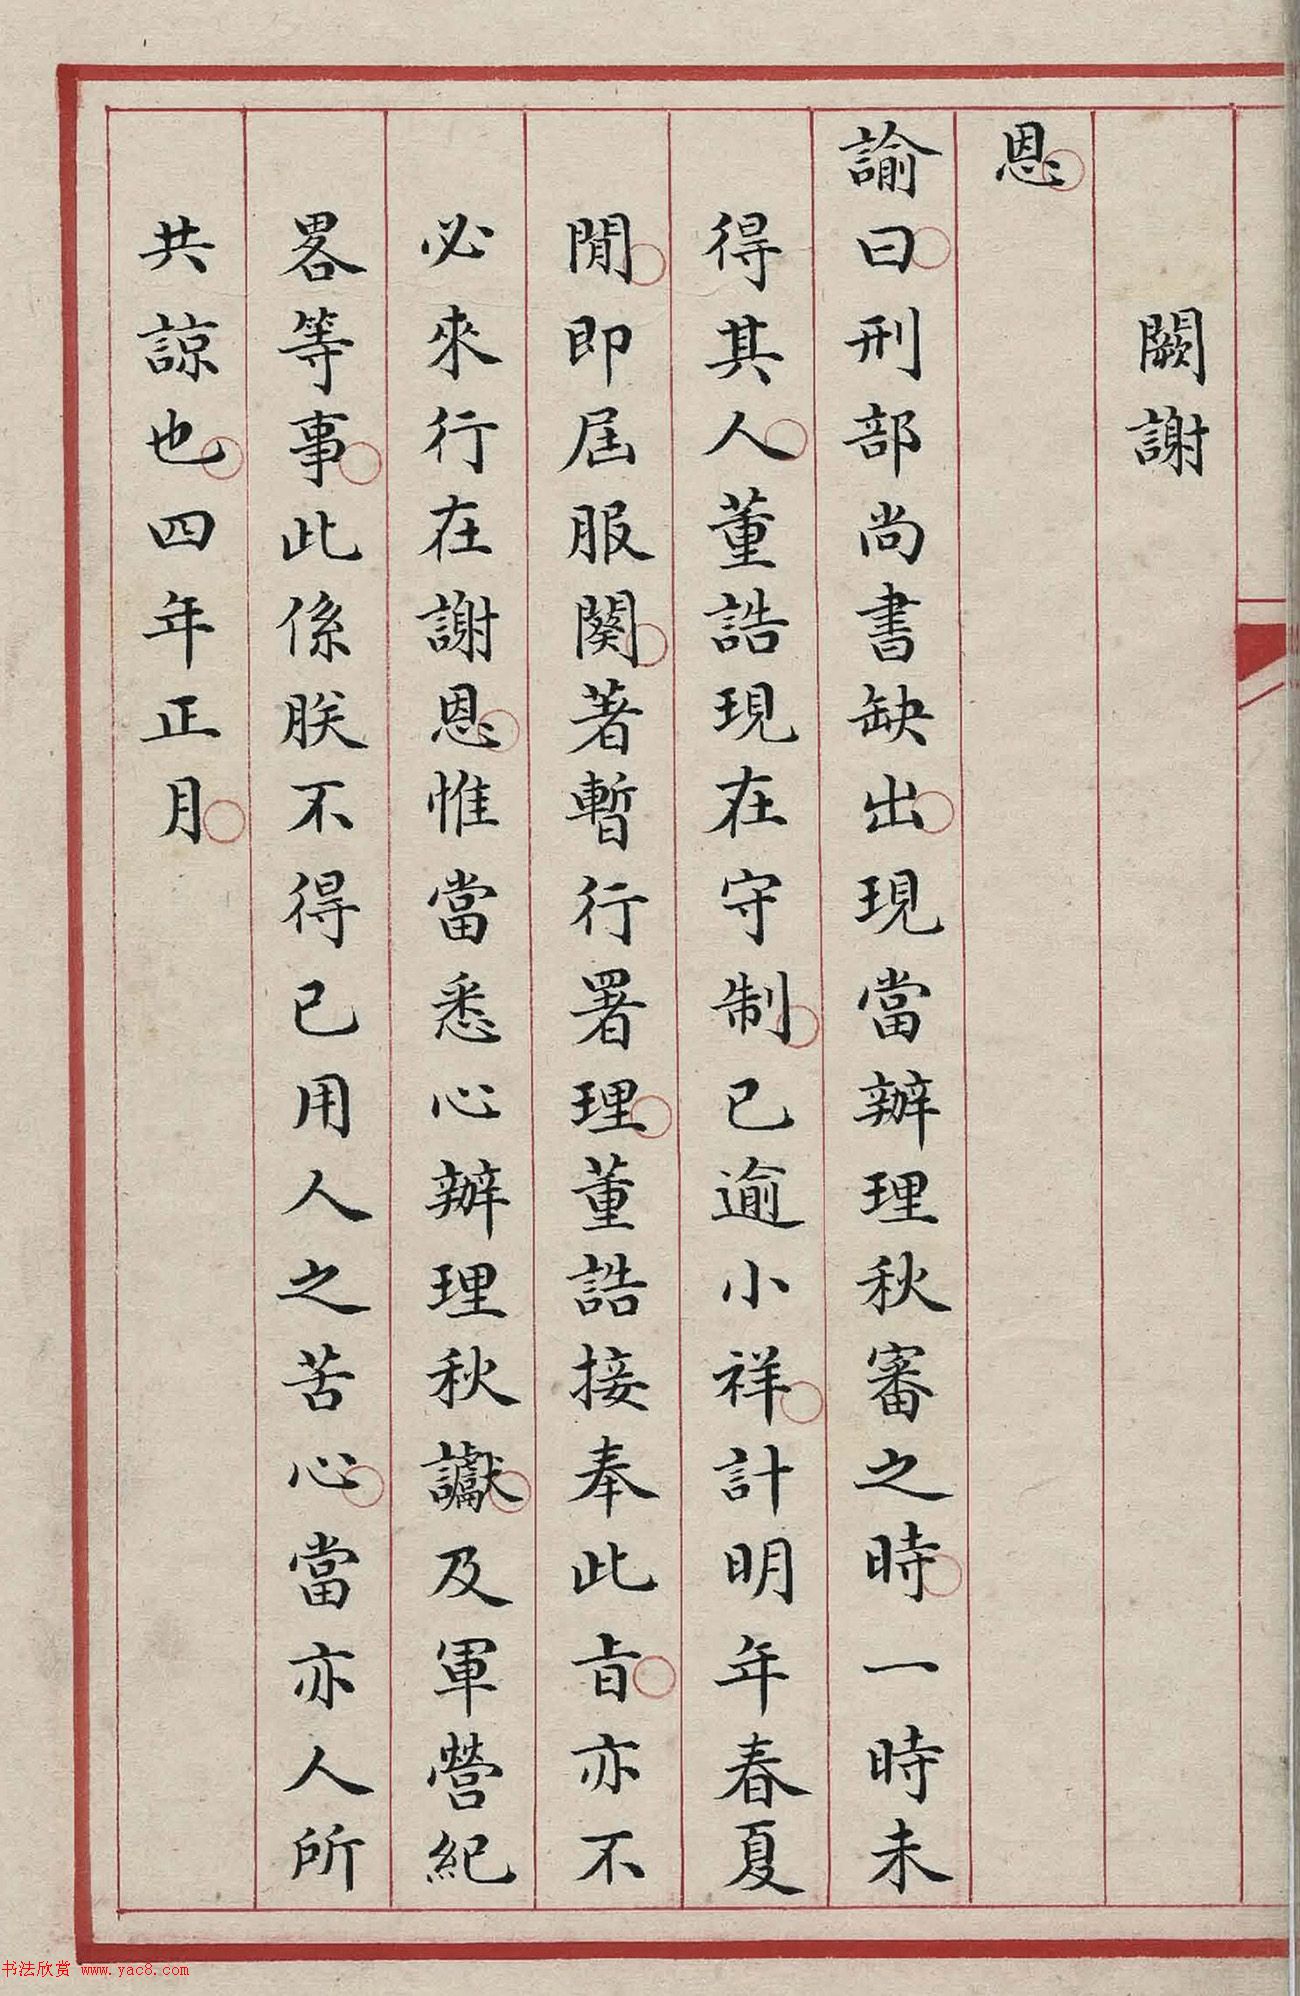 闕謝
恩
諭曰刑部尚書缺出現當辦理秋審之時一時未
得其人董誥現在守制已逾小祥計明年春夏
閒即屆服闋著暫行署理董誥接奉此旨亦不
必來行在謝恩惟當悉心辦理秋讞及軍營紀
畧等事此係朕不得已用人之苦心當亦人所
共諒也四年正月
书法欣赏 www.yac8.com